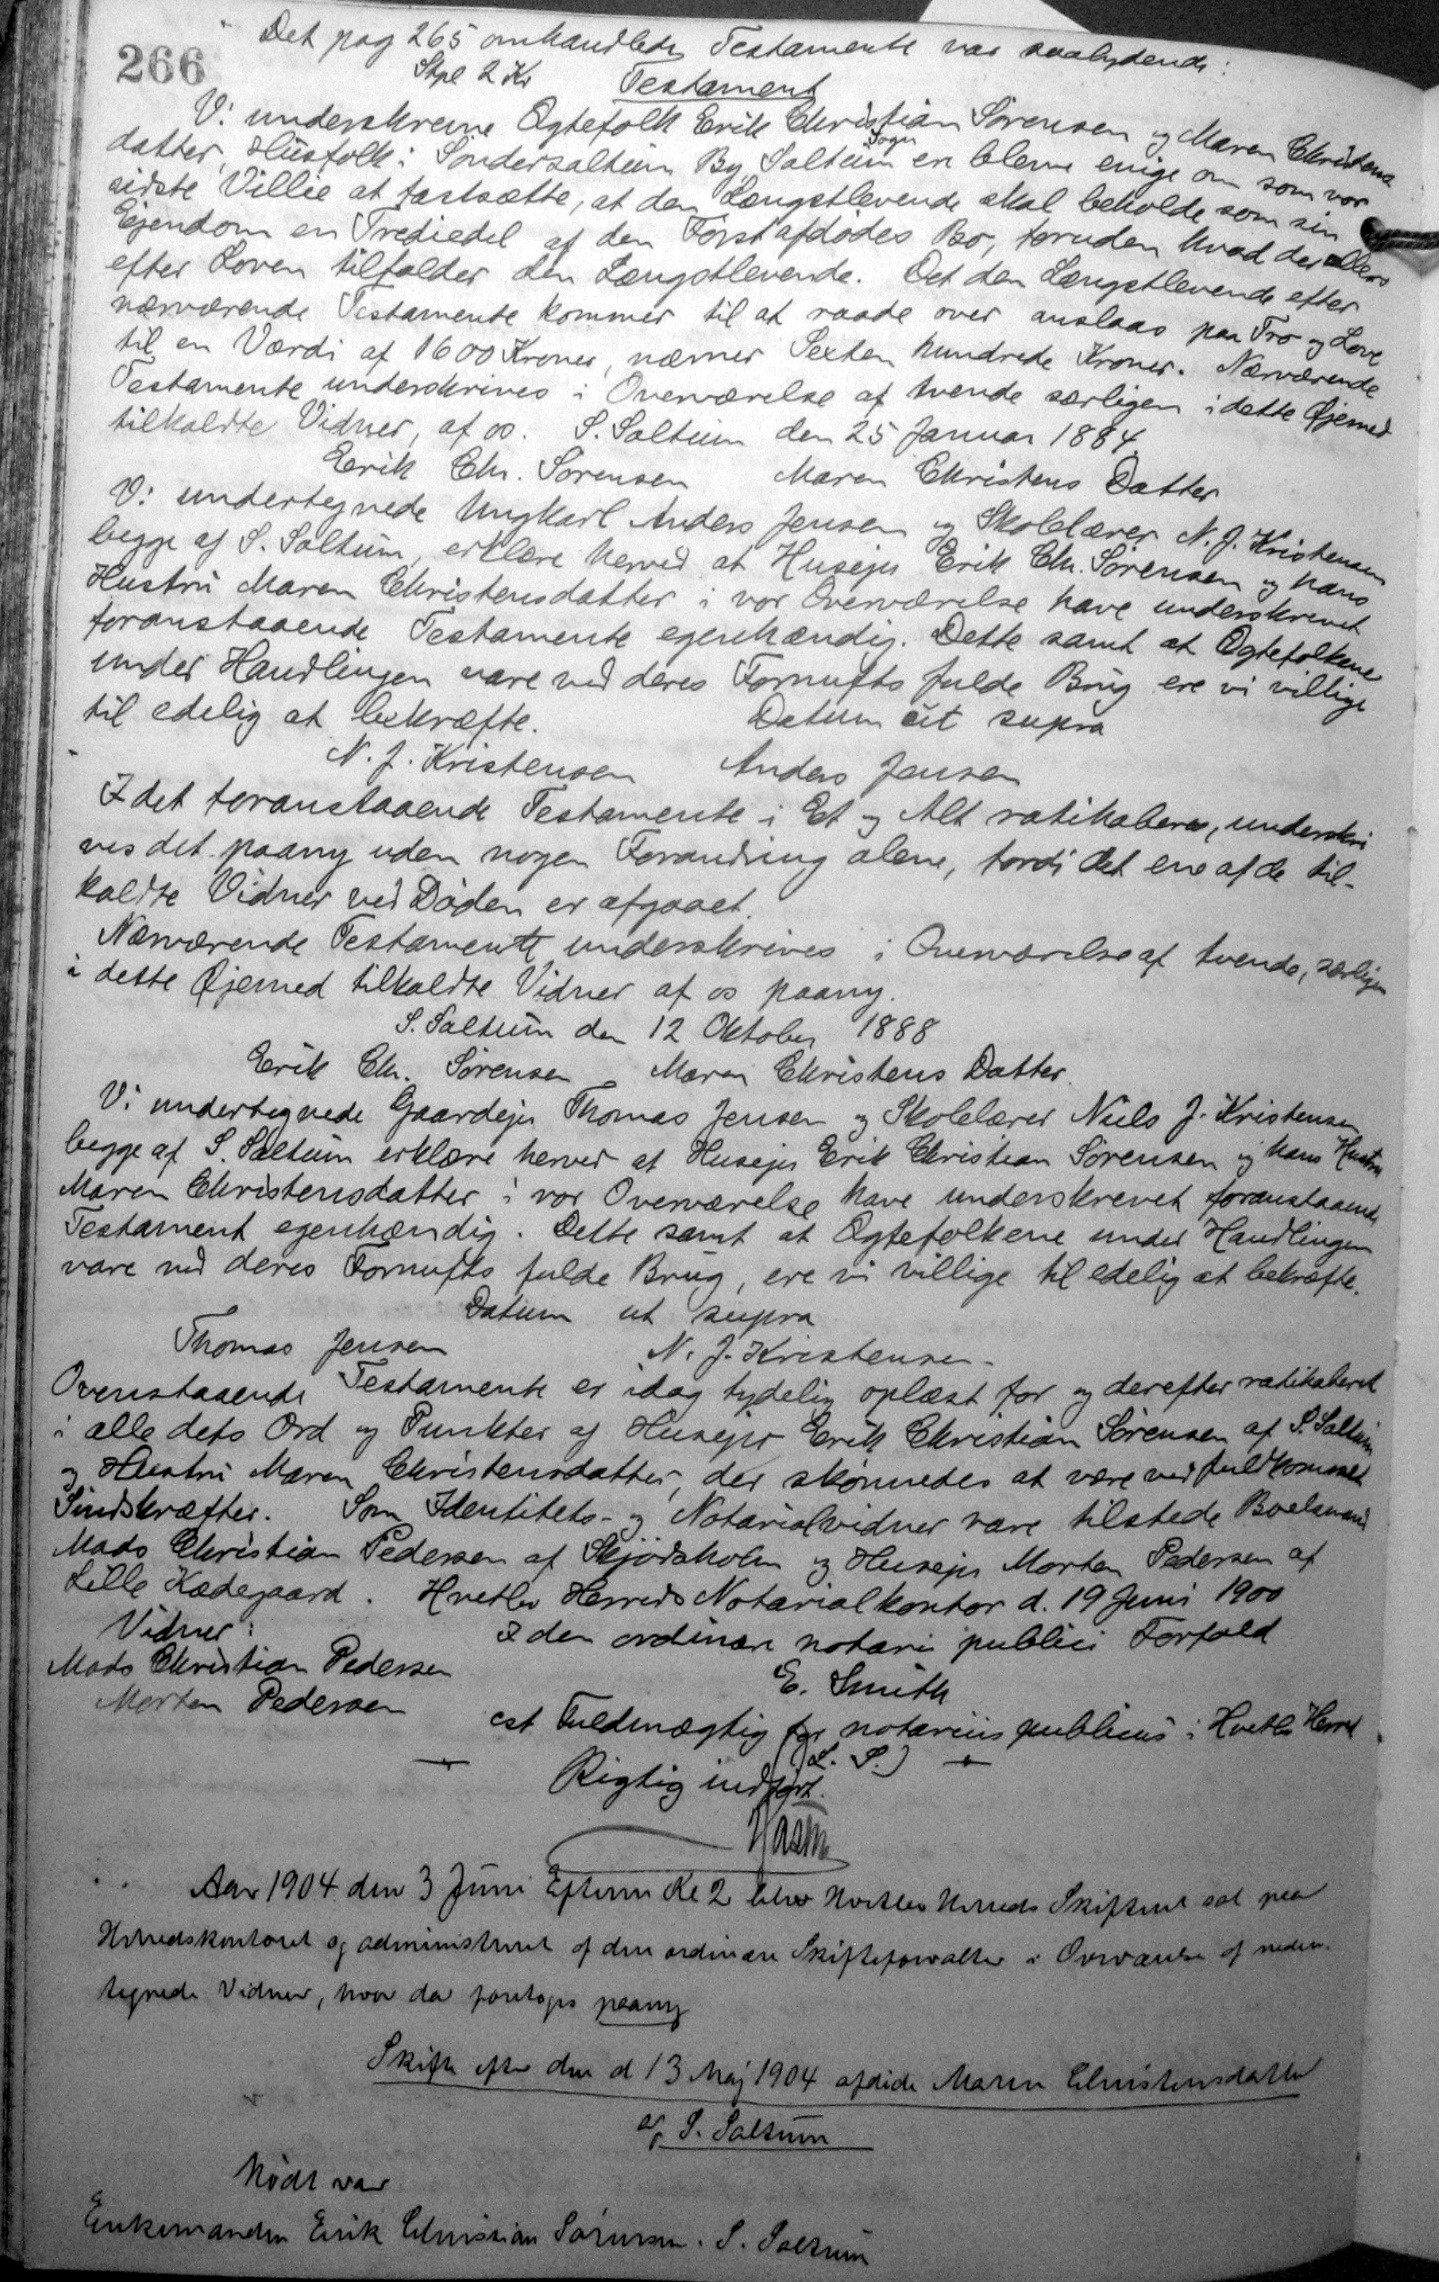 266
Det pag 265 omhandlede Testamente var saalydende:
Stpl 2 Kr Testament
Vi underskrevne Ægtefolk Erik Christian Sørensen og Maren Christens
datter, Husfolk i Søndersaltum By, Saltum Sogn ere blevne enige om som vor
sidste Villie at fastsætte, at den Længstlevende skal beholde som sin
Ejendom en Trediedel af den Førstafdødes Bo, foruden hvad der ellers
efter Loven tilfalder den Længstlevende. Det den Længstlevende efter
nærværende Testamente kommer til at raade over anslaas paa Tro og Love
til en Værdi af 1600 Kroner, nævner Sexten hundrede Kroner. Nærværende
Testamente underskrives i Overværelse af tvende særligen i dette Øjemed
tilkaldte Vidner, af os. S. Saltum den 25 Januar 1884
Erik Chr. Sørensen Maren Christens Datter
Vi undertegnede Ungkarl Anders Jensen og Skolelærer N. J. Kristensen
begge af S. Saltum, erklære herved at Husejer Erik Chr. Sørensen og hans
Hustru Maren Christensdatter i vor Overværelse have underskrevet
foranstaaende Testamente egenhændig. Dette samt at Ægtefolkene
under Handlingen vare ved deres Fornufts fulde Brug ere vi villige
til edelig at bekræfte. Datum ut supra
N. J. Kristensen Anders Jensen
I det foranstaaende Testamente i Et og Alt ratihaberes, underskri
ves det paany uden nogen Forandring alene, fordi det ene af de til-
kaldte Vidner ved Døden er afgaaet.
Nærværende Testamente underskrives i Overværelse af tvende, særligen
i dette Øjemed tilkaldte Vidner af os paany.
S. Saltum den 12 Oktober 1888
Erik Ch. Sørensen Maren Christens Datter.
Vi undertegnede Gaardejer Thomas Jensen og Skolelærer Niels J. Kristensen
begge af S. Saltum erklære herved at Husejer Erik Christian Sørensen og hans Hustru
Maren Christensdatter i vor Overværelse have underskrevet foranstaaende
Testament egenhændig. Dette samt at Ægtefolkene under Handlingen
vare ved deres Fornufts fulde Brug, ere vi villige til edelig at bekræfte.
Datum ut supra
Thomas Jensen N. J. Kristensen
Ovenstaaende Testamente er idag tydelig oplæst for og derefter ratihaberet
i alle dets Ord og Punkter af Husejer Erik Christian Sørensen af S. Saltum
og Hustru Maren Christensdatter, der skønnedes at være ved fuldkomne
Sindskræfter. Som Identitets- og Notarialvidner vare tilstede Boelsmand
Mads Christian Pedersen af Skjødsholm og Husejer Morten Pedersen af
Lille Kædegaard. Hvetbo Herreds Notarialkontor d. 19 Juni 1900
Vidner: I den ordinære notarii publici Forfald
Mads Christian Pedersen E. Smith
Morten Pedersen cst Fuldmægtig for notarius publicus i Hvetbo Herred
(L. S.)
Rigtig indført.
Aar 1904 den 3 Juni Efterm Kl 2 blev Hvetbo Herreds Skifteret sat paa
Herredskontoret og administreret af den ordinære Skifteforvalter i Overværelse af neden-
tegnede Vidner, hvor da foretoges paany
Skifte efter den d 13 Maj 1904 afdøde Maren Christensdatter
af S. Saltum
Mødt var
Enkemanden Erik Christian Sørensen. S. Saltum